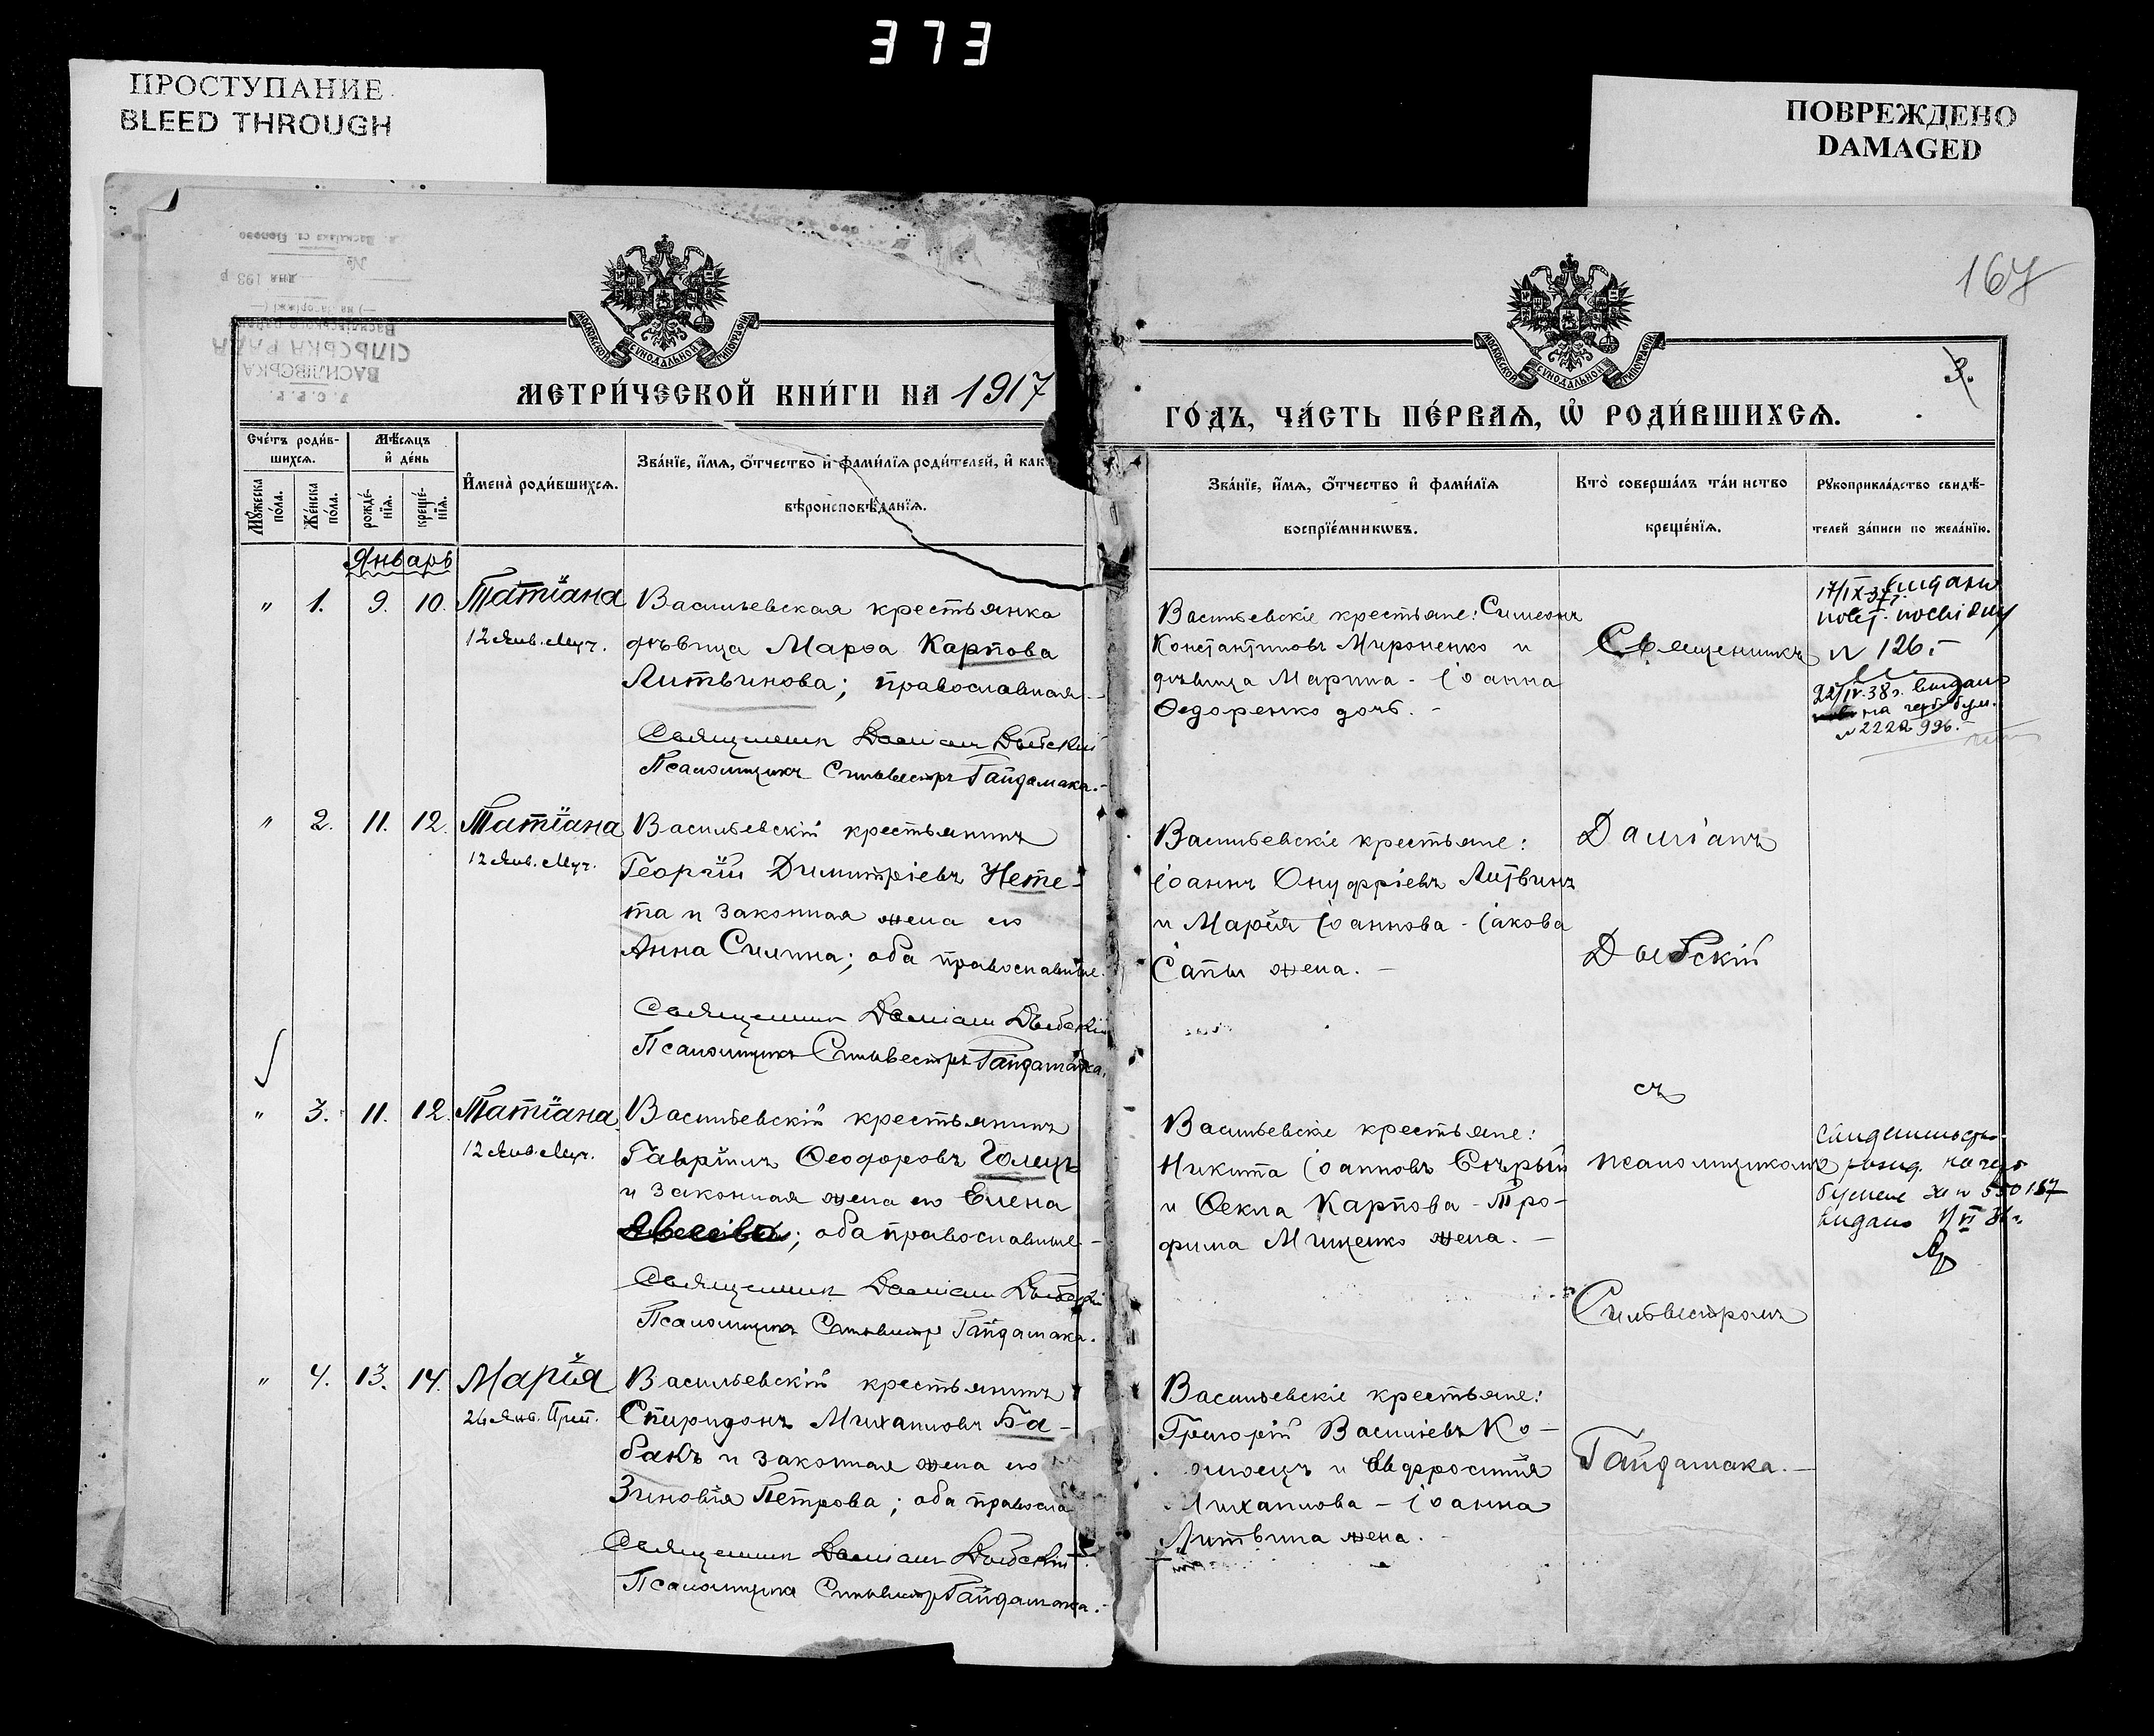 373
ПРОСТУПАНИЕ
BLEED THROUGH
ПОВРЕЖДЕНО
DAMAGED
167
3.
У.С.Р.Р.
ВАСИЛІВСЬКА
СІЛЬСЬКА РАДА
дня 193 р
№
МОСКОВСКОЙ СУНОДАЛЬНОЙ ТИПОГРАФІИ
МОСКОВСКОЙ СУНОДАЛЬНОЙ ТИПОГРАФІИ
МЕТРИ́ЧЕСКОЙ КНИ́ГИ НА 1917
ГО́ДЪ, ЧА́СТЬ ПЕ́РВАѦ, Ѡ҆ РОДИ́ВШИХСѦ.
Сче́тъ роди́в-
шихсѧ.
Мѣ́сѧцъ
и҆ де́нь
Мꙋ́жеска по́ла.
Же́нска по́ла.
рожде́-нїѧ.
креще́-нїѧ.
И҆мена̀ роди́вшихсѧ.
Зва́нїе, и҆́мѧ, ѻ҆́тчество и҆ фами́лїѧ роди́телей, и҆ как
вѣроисповѣ́данїѧ.
Зва́нїе, и҆́мѧ, ѻ҆́тчество и҆ фами́лїѧ
воспрїе́мникѡвъ.
Кто̀ соверша́лъ та́инство
креще́нїѧ.
Рꙋкоприкла́дство свидѣ́-
телей за́писи по жела́нїю.
Январь
" 1. 9. 10. Татіана
12 Янв. Муч.
Васильевская крестьянка
дѣвица Марѳа Карпова
Литвинова; православная
Священникъ Даміанъ Дыбскій
Псаломщикъ Сильвестръ Гайдамака.
Васильевскіе крестьяне: Симеонъ
Константиновъ Мироненко и
дѣвица Марина - Іоанна
Ѳедоренко дочь.
Священникъ
17/IX-37 г. видано
N 126.
22/IV.38 г. видано
на герб бум.
N 2222 996.
" 2. 11. 12. Татіана
12 Янв. Муч.
Васильевскій крестьянинъ
Георгій Димитріевъ Нете-
та и законная жена его
Анна Силина; оба православные.
Священникъ Даміанъ Дыбскій
Псаломщикъ Сильвестръ Гайдамака.
Васильевскіе крестьяне:
Іоаннъ Онуфріевъ Литвинъ
и Марія Іоаннова - Іакова
Сапы жена.
Даміанъ
Дыбскій
" 3. 11. 12. Татіана
12 Янв. Муч.
Васильевскій крестьянинъ
Гавріилъ Ѳеодоровъ Голецъ
и законная жена его Елена
; оба православные
Священникъ Даміанъ Дыбскій
Псаломщикъ Сильвестръ Гайдамака.
Васильевскіе крестьяне:
Никита Іоанновъ Сѣрый
и Ѳекла Карпова - Тро-
фима Мищенко жена.
съ
псаломщикомъ
Сильвестромъ
550187
видано
" 4. 13. 14. Марія
26 Янв. Преп.
Васильевскій крестьянинъ
Спиридонъ Михаиловъ Ба-
бакъ и законная жена его
Зиновія Петрова; оба правосла
Священникъ Даміанъ Дыбскій
Псаломщикъ Сильвестръ Гайдамака.
Васильевскіе крестьяне:
Григорій Васильевъ Ко-
ломоецъ и Евфросинія
Михаилова - Іоанна
Литвина жена.
Гайдамака.